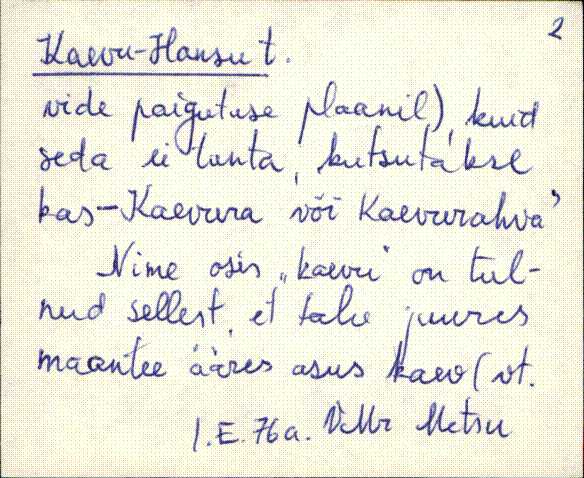 2
Kaevu-Hansu t.
vide paigutuse plaanil), kuid
seda ei tunta, kutsutakse
kas - Kaevura või Kaevurahva"
Nime osis „kaevu" on tul-
nud sellest, et talu juures
maantee ääres asus kaev (vt.
I.E. 76a. VMr Metsu